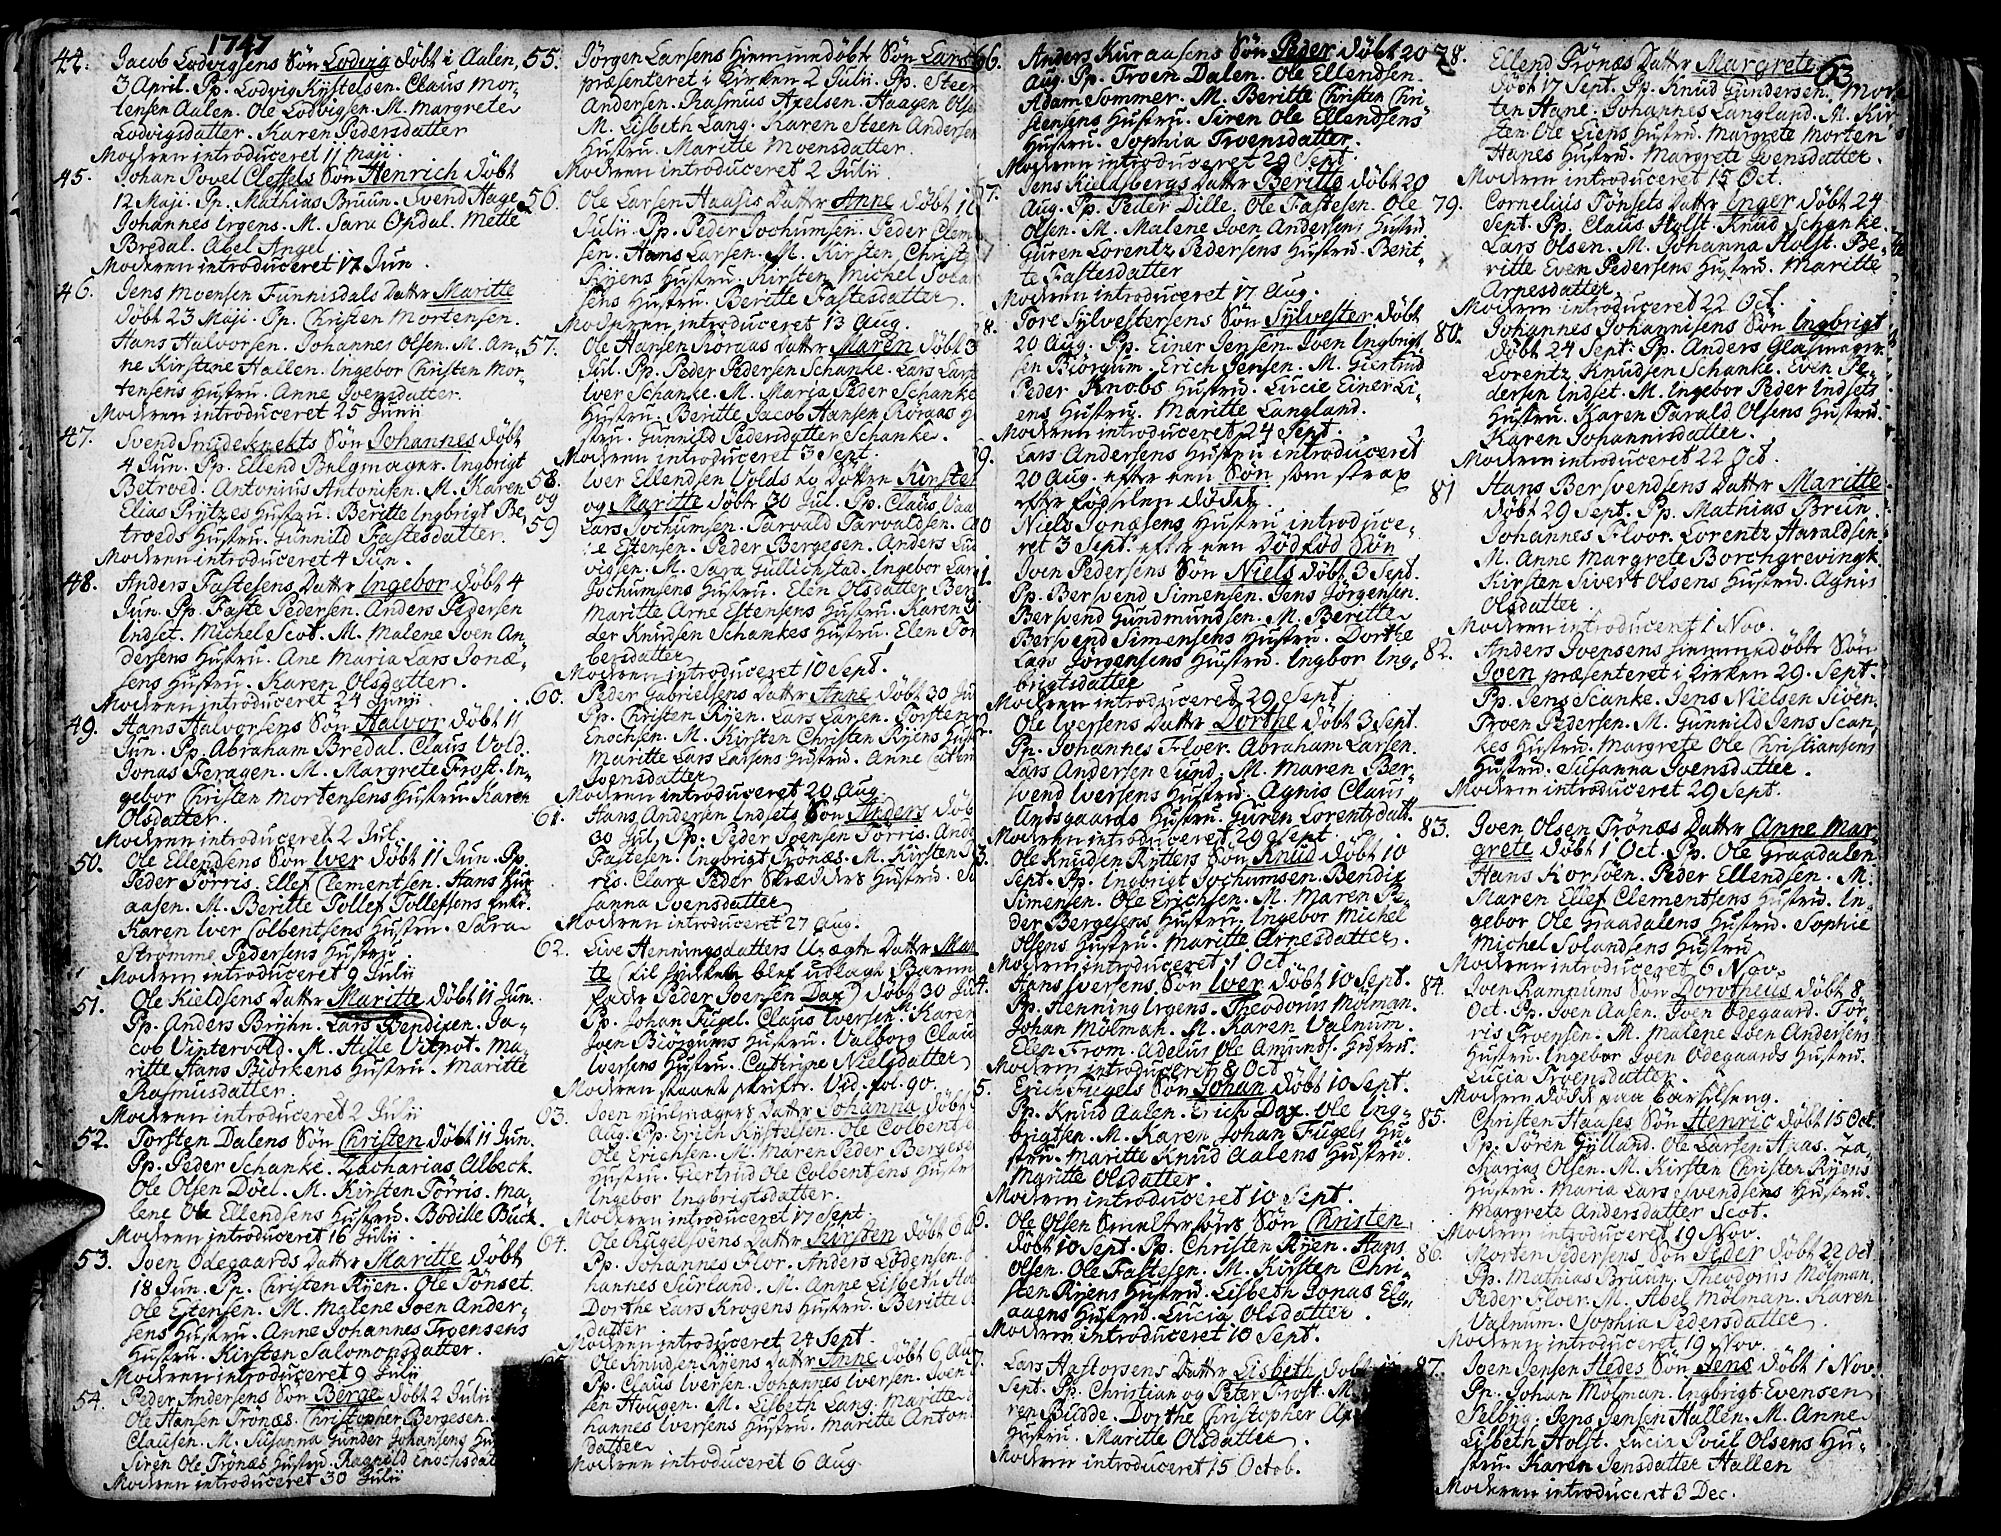 1747
44. Jacob Lodvigsens Søn Lodvig døbt i Aalen,
3 April. Pp. Lodvig Kystelsen. Claus Mor-
tensen Aalen. Ole Lodvigsen. M. Margrete
Lodvigsdatter. Karen Pedersdatter
Moderen introduceret 11 Maji.
45. Johan Povel Clefels Søn Henrich døbt
12 Maji. Pp. Mathias Bruun. Svend Aage
Johannes Irgens. M. Sara Opdal. Mette
Bredal. Abel Angel
Moderen introduceret 17 Jun.
46. Jens Moensen Funnisdals Datter Maritte
døbt 23 Maji. Pp. Christen Mortensen.
Hans Halvorsen. Johannes Olsen. M. An-
ne Kirstine Hallen. Ingebor Christen Mor-
tensens Hustru. Anne Joensdatter.
Moderen introduceret 25 Junii
47. Svend Smedeknekts Søn Johannes døbt
4 Jun. Pp. Ellend Belgmager. Ingbrigt
Betroed. Antonius Antonisen. M. Karen
Elias Prytzes Hustru. Beritte Ingbrigt Be-
troeds Hustru. Gunnild Fastesdatter.
Moderen introduceret 4 Jun.
48. Anders Fastesens Datter Ingebor døbt 4
Jun. Pp. Faste Pedersen. Anders Pedersen
Indset. Michel Scot. M. Malene Joen An
dersens Hustru. Ane Maria Lars Jonæ-
sens Hustru. Karen Olsdatter.
Moderen introduceret 24 Junii
49. Hans Halvorsens Søn Halvor døbt 11
Jun. Pp. Abraham Bredal. Claus Vold.
Jonas Feragen. M. Margrete Frost. In-
gebor Christen Mortensens Hustru. Karen
Olsdatter.
Moderen introduceret 2 Jul.
50. Ole Ellendsens Søn Iver døbt 11 Jun. Pp.
Peder Tørris. Ellef Clementsen. Hans Kur
aasen. M. Beritte Tollef Tollefsens Enke.
Karen Iver Colbentsens Hustru. Sara
Strømme Pedersens Hustru.
Moderen introduceret 9 Julii
51. Ole Kieldsens Datter Maritte døbt 11 Jun.
Pp. Anders Bryhn. Lars Bendixen. Ja-
cob Vintervold. M. Hille Vitnot. Ma-
ritte Hans Biørkens Hustru. Maritte
Rasmusdatter.
Moderen introduceret 2 Julii
52. Torsten Dalens Søn Christen døbt 11 Jun.
Pp. Peder Schanke. Zacharias Albeck.
Ole Olsen Døel. M. Kirsten Tørris. Ma-
lene Ole Ellendsens Hustru. Bodille Buck
Moderen introduceret 16 Julii.
53. Joen Odegaards Datter Maritte døbt
18 Jun. Pp. Christen Ryen. Ole Tønset.
Ole Estensen. M. Malene Joen Ander-
sens Hustru. Anne Johannes Troensens
Hustru. Kirsten Salomonsdatter.
Moderen introduceret 9 Julii
54. Peder Andersens Søn Berge døbt 2 Julii
Ole Hansen Trønæs. Christopher Bergesen.
Clausen. M. Susanna Gunder Johansens
Siren Ole Trønæs Hustru. Ragnild Enochsdat
Moderen introduceret 30 Julii
55. Jørgen Larsens hiemmedøbt Søn Lars
præsenteret i Kirken 2 Julii. Pp. Steen
Andersen. Rasmus Axelsen. Haagen Olse
M. Lisbeth Lang. Karen Steen Andersen
Hustru. Maritte Moensdatter.
Moderen introduceret 2 Julii
56. Ole Larsen Haases Datter Anne døbt
Julii. Pp. Peder Jochumsen. Peder Clem
sen. Hans Larsen. M. Kirsten Christe
Ryens Hustru. Kirsten Michel Solan
sens Hustru. Beritte Fastesdatter.
Moderen introduceret 13 Aug.
57. Ole Hansen Røraas Datter Maren døbt 3
Jul. Pp. Peder Pedersen Schanke. Lars Lars
Iver Schanke. M. Maria Peder Schanke
Hustru. Beritte Jacob Hansen Røraas
stru. Gunnild Pedersdatter Schanke.
Moderen introduceret 3 Sept.
58. og 59 Iver Ellendsen Volds to Døttre Kirsten
og Maritte døbte 30 Jul. Pp. Claus Vaa
Lars Jochumsen. Tarvald Tarvaldsen.
Estensen. Peder Bergesen. Anders
vigsen. M. Sara Gullichstad. Ingebor Lars
Jochumsens Hustru. Elen Olsdatter
Maritte Arne Estensens Hustru. Karen
der Knudsen Schankes Hustru. Elen Tor
bersdatter
Moderen introduceret 10 Sept.
60. Peder Gabrielsens Datter Anne døbt 30
Pp. Christen Ryen. Lars Larsen. Torsten
Enochsen. M. Kirsten Christen Ryens
Maritte Lars Larsens Hustru. Anne
Joensdatter
Moderen introduceret 20 Aug.
61. Hans Andersen Indsets Søn Anders døb
30 Jul. Pp. Peder Joensen Tørris. And
Fastesen. Ingbrigt Trønæs. M. Kirsten
ris. Clara Peder Skrædders Hustru.
sanna Joensdatter
Moderen introduceret 27 Aug.
62. Live Henningsdatters Uægte Datter Mar
te (til hvilken blef udlagt Barne
fader Peder Joensen Dax) døbt 30 Jul
Pp. Johan Fugel. Claus Iversen. Karen
Joen Biørgums Hustru. Valborg Claus
Iversens Hustru. Cathrine Nielsdatter
Moderen staaet skrifte. Vid. fol. 90.
63. Joen Hiulmagers Datter Johanna døbt
Aug. Pp. Erich Kystelsen. Ole Colbent
Ole Erichsen. M. Maren Peder Bergese
Hustru. Giertrud Ole Colbentsens Hustr
Ingebor Ingbrigtsdatter.
Moderen introduceret 17 Sept.
64. Ole Rugelsøens Datter Kirsten døbt 6
Pp. Johannes Flor. Anders Lødensen.
hannes Suurland. M. Anne Lisbeth Hol
Dorthe Lars Krogens Hustru. Beritte
datter
Moderen introduceret 24 Sept.
Ole Knudsen Ryens Datter Anne døbt 6 Aug
Pp. Claus Iversen. Johannes Iversen. Joen
sen Hougen. M. Lisbeth Lang. Maritte
hannes Iversens Hustru. Maritte Anton
datter
Moderen introduceret 6 Aug.
66. Anders Kuraasens Søn Peder døbt 20
Aug. Pp. Troen Dalen. Ole Ellendsen.
Adam Sommer. M. Beritte Christen Chri-
stensens Hustru. Siren Ole Ellendsens
Hustru. Sophia Troensdatter.
Moderen introduceret 29 Sept.
7. Jens Kieldsbergs Datter Beritte døbt 20
Aug. Pp. Peder Dille. Ole Fastesen. Ole
Olsen. M. Malene Joen Andersens Hustru
Guren Lorentz Pedersens Hustru. Berit-
te Fastesdatter
Moderen introduceret 17 Aug.
8. Tore Sylvestersens Søn Sylvester døbt
20 Aug. Pp. Einer Jensen. Joen Ingbrigt
sen Biørgum. Erich Jensen. M. Giertrud
Peder Knobs Hustru. Lucie Einer Li-
ens Hustru. Maritte Langland.
Moderen introduceret 24 Sept.
9. Lars Andersens Hustru introduceret
20 Aug. efter een Søn som strax
efter fødselen døde.
0 Niels Jonasens Hustru introduce-
ret 3 Sept. efter een Dødfød Søn
1. Iven Pedersens Søn Niels døbt 3 Sept.
Pp. Bersvend Simensen. Jens Jørgensen.
Bersvend Gundmundsen. M. Beritte
Bersvend Simensens Hustru. Dorthe
Lars Jørgensens Hustru. Ingbor Ing-
brigtsdatter
Moderen introduceret 29 Sept.
2. Ole Iversens Datter Dorthe døbt 3 Sept.
Pp. Johannes Floer. Abraham Larsen.
Lars Andersen Sund. M. Maren Ber-
svend Iversens Hustru. Agnis Claus
Andsgaards Hustru. Guren Lorentzdatt.
Moderen introduceret 29 Sept.
3. Ole Knudsen Rytters Søn Knud døbt 10
Sept. Pp. Ingbrigt Jochumsen. Bendix
Simensen. Ole Erichsen. M. Maren Pe-
der Bergesens Hustru. Ingebor Michel
Olsens Hustru. Maritte Arnesdatter.
Moderen introduceret 1 Oct.
4. Hans Iversens Søn Iver døbt 10 Sept.
Pp. Henning Irgens. Theodorus Mølman.
Johan Mølman. M. Karen Valnum.
Elen From. Adelus Ole Amunds. Hustru.
Moderen introduceret 8 Oct.
5. Erich Fugels Søn Johan døbt 10 Sept.
Pp. Knud Aalen. Erich Dax. Ole Ing-
brigtsen. M. Karen Johan Fugels Hu-
stru. Maritte Knud Aalens Hustru.
Maritte Olsdatter.
Moderen introduceret 10 Sept.
6. Ole Olsen Smaltersøns Søn Christen
døbt 10 Sept. Pp. Christen Ryen. Hans
Olsen. Ole Fastesen. M. Kirsten Chri-
sten Ryens Hustru. Lisbeth Jonas Ela-
aaens Hustru. Lucia Olsdatter.
Moderen introduceret 10 Sept.
7. Lars Hastorsens Datter Lisbeth døbt
Sept. Pp. Christian og Peter Frost. M.
ren Budde. Dorthe Christopher
Hustru. Maritte Olsdatter.
Moderen introduceret 15 Octob.
63
78. Ellend Trønæs Datter Margrete
døbt 17 Sept. Pp. Knud Gundersen. Mor
ten Hane. Johannes Langland. M. Kir
sten Ole Liens Hustru. Margrete Morten
Hanes Hustru. Margrete Joensdatter.
Moderen introduceret 15 Oct.
79. Cornelius Tønsets Datter Inger døbt 24
Sept. Pp. Claus Holst. Knud Schanke.
Lars Olsen. M. Johanna Holst. Be-
ritte Even Pedersens Hustru. Maritte
Arnesdatter.
Moderen introduceret 22 Oct.
80. Johannes Johannisens Søn Ingbrigt
døbt 24 Sept. Pp. Anders Glasmager.
Lorentz Knudsen Schanke. Even Pe-
dersen Indset. M. Ingebor Peder Indsets
Hustru. Karen Tarald Olsens Hustru.
Karen Johannisdatter.
Moderen introduceret 22 Oct.
81 Hans Bersvendsens Datter Maritte
døbt 29 Sept. Pp. Mathias Bruun.
Johannes Floor. Lorentz Haraldsen.
M. Anne Margrete Borchgrevingk.
Kirsten Sivert Olsens Hustru. Agnis
Olsdatter.
Moderen introduceret 1 Nov.
82. Anders Ivensens hiemmedøbte Søn
Joen præsenteret i Kirken 29. Sept.
Pp. Jens Scanke. Jens Nielsen Sioen.
Troen Pedersen. M. Gunnild Jens Scan-
kes Hustru. Margrete Ole Christiansens
Hustru. Susanna Joensdatter.
Moderen introduceret 29 Sept.
83. Joen Olsen Trønæs Datter Anne Mar-
grete døbt 1 Oct. Pp. Ole Graadalen
Hans Korsøen. Peder Ellendsen. M.
Maren Ellef Clementsens Hustru. In-
gebor Ole Graadalens Hustru. Sophie
Michel Solandsens Hustru
Moderen introduceret 6 Nov.
84. Joen Rampiums Søn Dorotheus døbt 8.
Oct. Pp. Joen Aasen. Joen Ødegaard. Tør-
ris Troensen. M. Malene Joen Andersens
Hustru. Ingebor Joen Ødegaards Hustru.
Lucia Troensdatter.
Moderen døde paa barselseng.
85. Christen Haases Søn Henric døbt 15 Oct.
Pp. Søren Gylland. Ole Larsen Haas. Za-
charias Olsen. M. Kirsten Christen Ryens
Hustru. Maria Lars Svendsens Hustru.
Margrete Andersdatter Scot.
Moderen introduceret 19 Nov.
86. Morten Pedersens Søn Peder døbt 22 Oct.
Pp. Mathias Bruun. Theodorus Mølman.
Peder Floer. M. Abel Mølman. Karen
Valnum. Sophia Pedersdatter.
Moderen introduceret 19 Nov.
87. Joen Jensen Hedes Søn Jens døbt 1 Nov.
Pp. Johan Mølman. Ingbrigt Evensen
Selbyg. Jens Jensen Hallen. M. Anne
Lisbeth Holst. Lucia Poul Olsens Hu-
stru. Karen Jensdatter Hallen
Moderen introduceret 3 Dec.